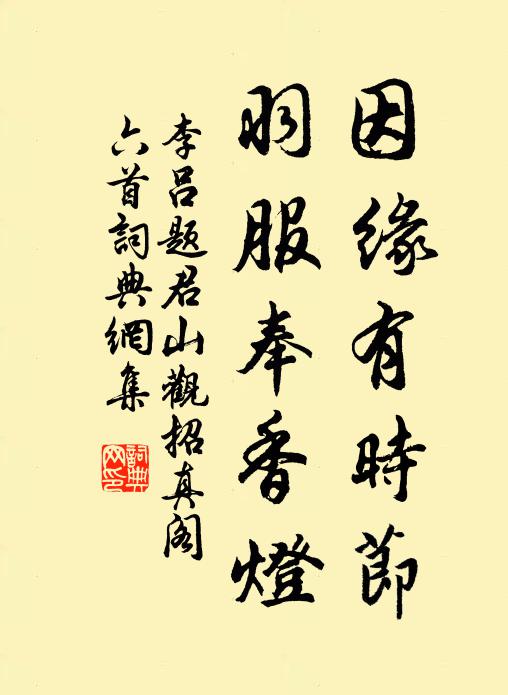 因缘有時節
羽服奉香燈
李吕题君山觀招真阁
六首詞典網集
詞典网印